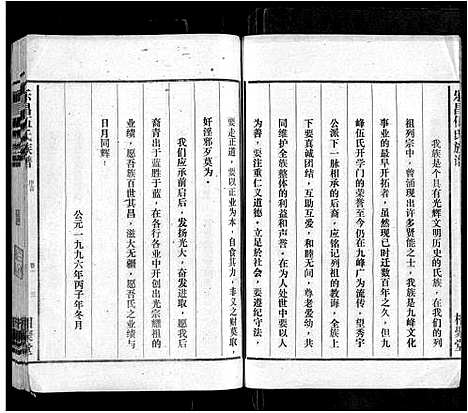 乐昌伍氏族谱
我族是个具有光辉文明历史的氏族，在我们的列
祖列宗中，曾涌现出许多贤能之士，我族是九峰文化
事业的最早开拓者，虽然现已时迁数百年之久，但九
峰伍氏开学门的荣誉至今仍在九峰广为流传，望秀宇
公派下一脉相承的后裔，应铭记列祖的教诲，全族上
下要真诚团结，互助互爱，和睦无间，尊老爱幼，共
同维护全族整体的利益和声誉。在为人处世中要以人
为善，要注重仁义道德，立足於社会，要遵纪守法，
要走正道，要以正业为本，自食其力，非义之财莫取，
奸淫邪歹莫为。
我们应承前启后，发扬光大，奋发进取，愿我后
裔青出于蓝胜于蓝，在各行各业中开创出光宗耀祖的
业绩，愿吾族百世其昌，滋大无疆，愿吾氏之业绩与
日月同辉！
公元一九九六年丙子年冬月
乐昌伍氏族谱
卷一